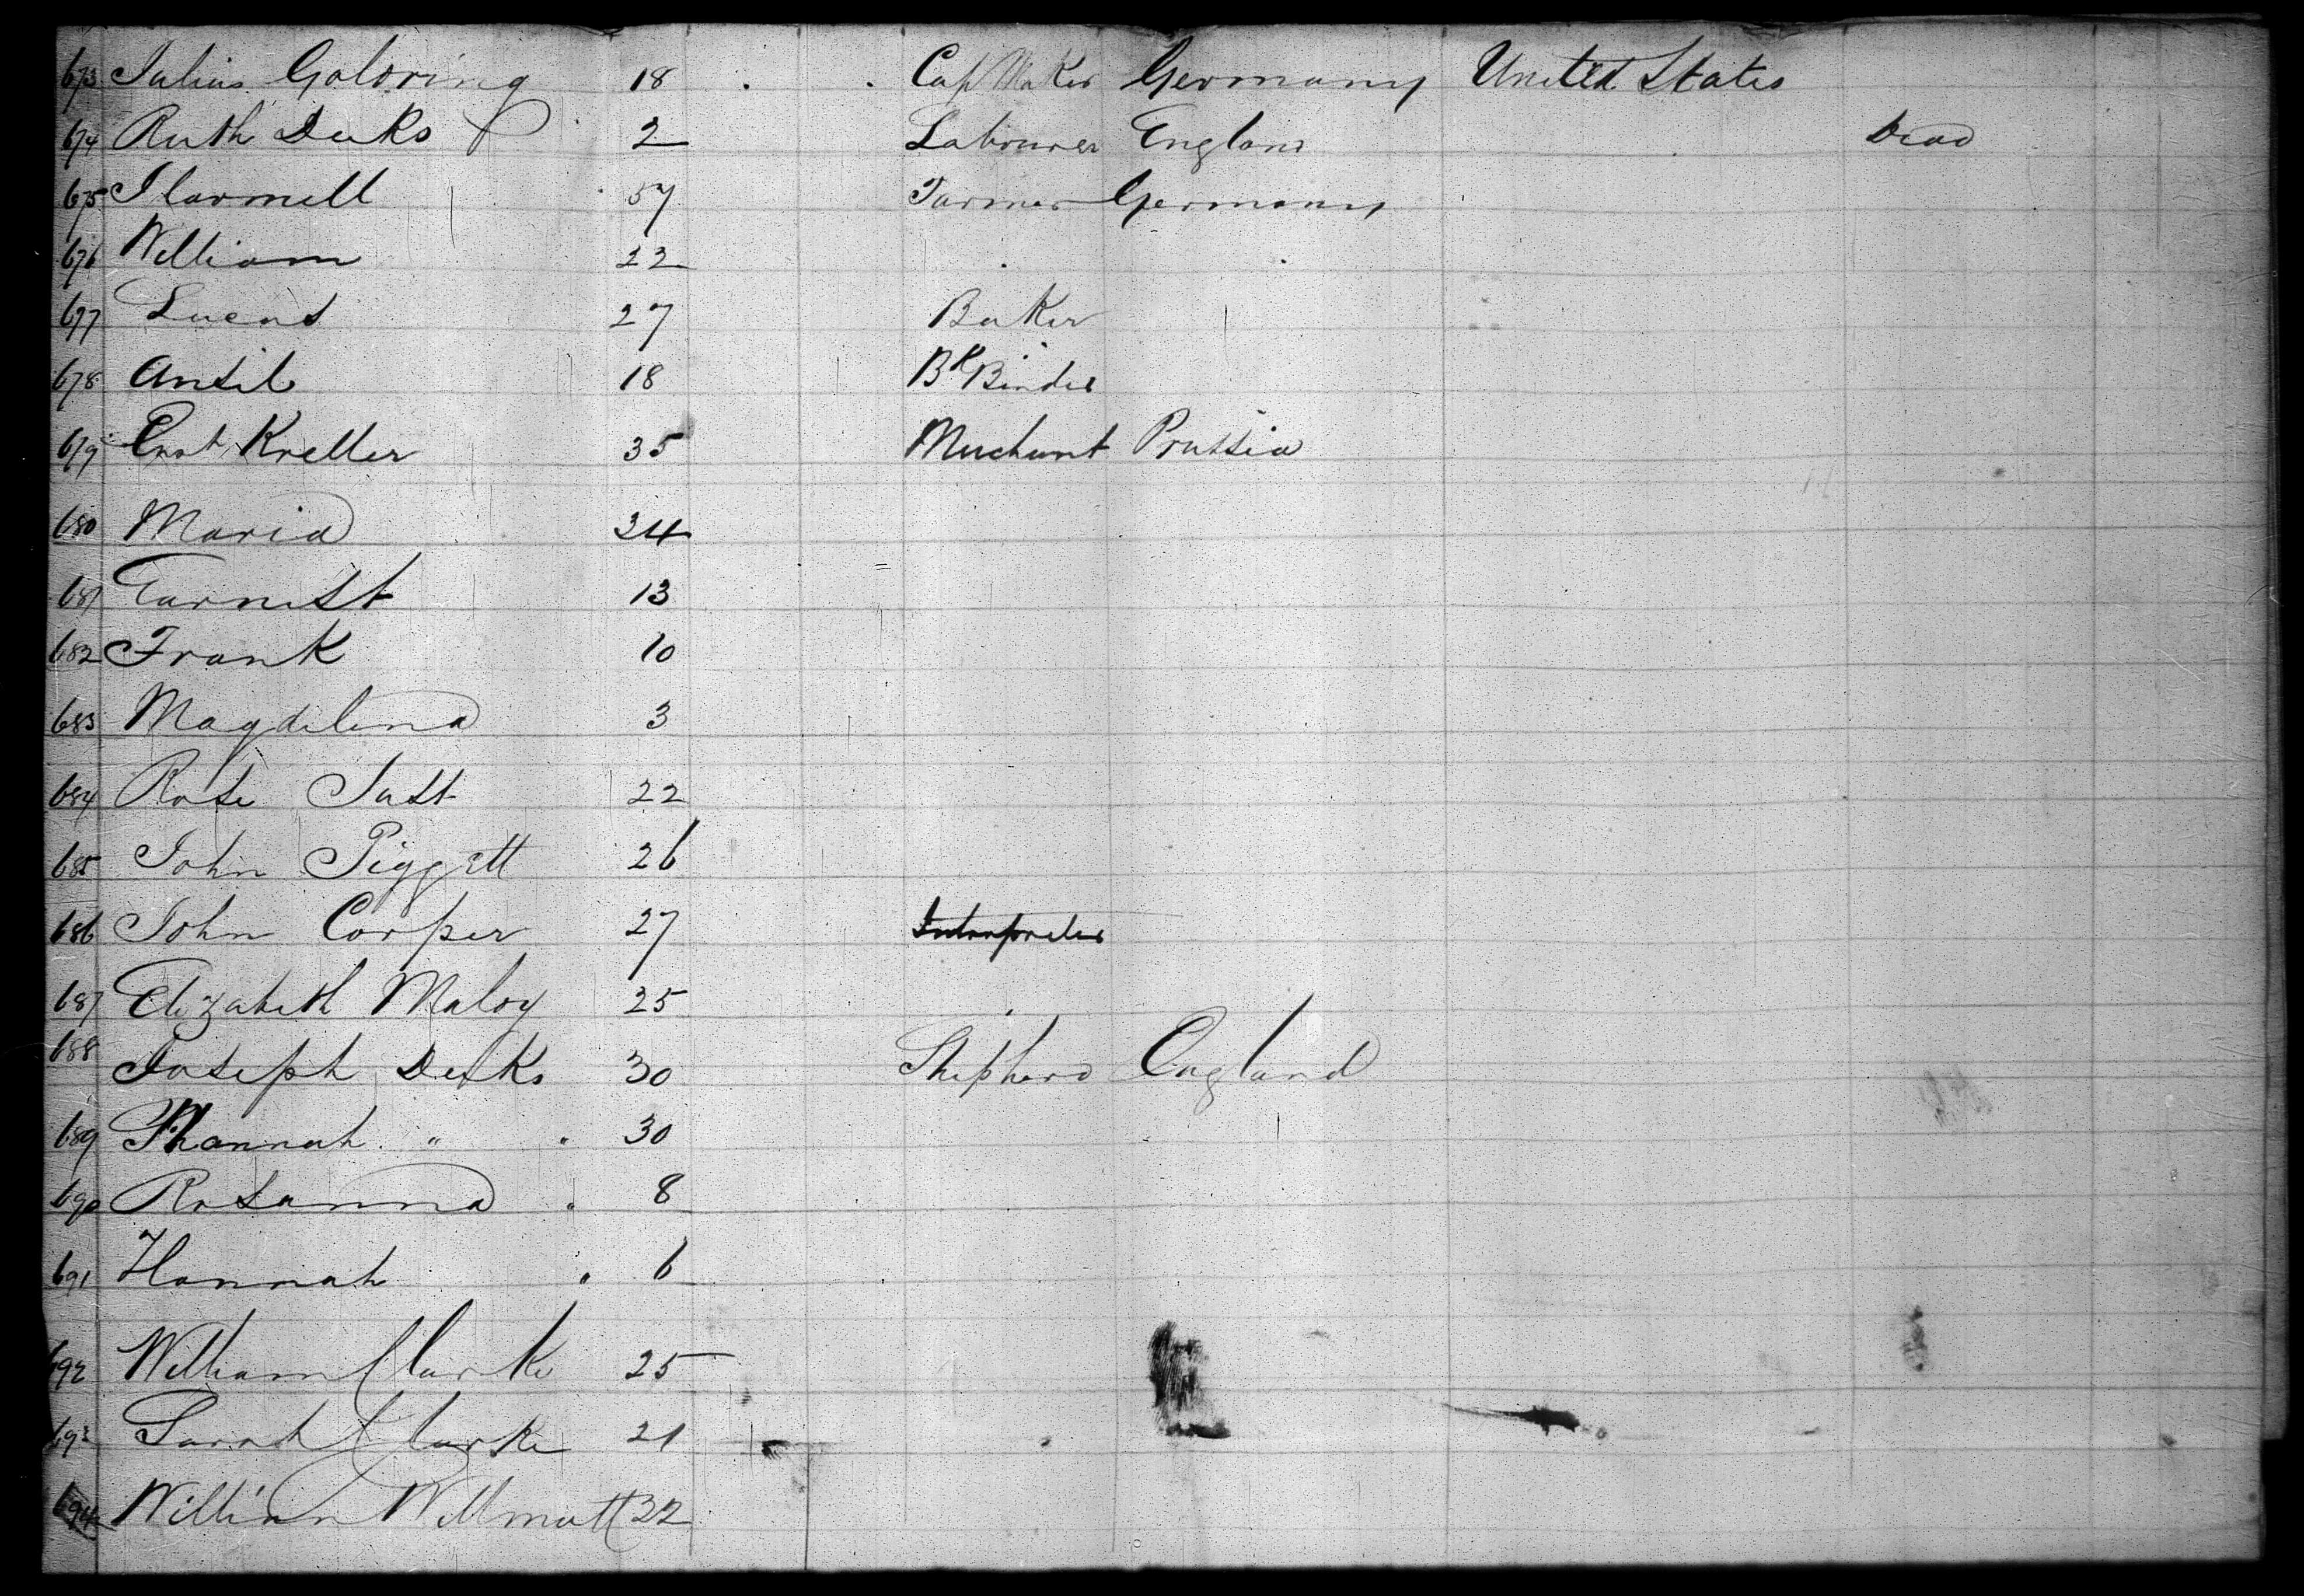 673 Julius Goldring 18 Cap Maker Germany United States
674 Ruth Deeks 2 Labourer England Dead
675 I Carmell 57 Farmer Germany
676 William 22
677 Lucas 27 Baker
678 Ansil 18 Bk Binder
679 Ernst Kreller 35 Merchant Prussia
680 Maria 34
681 Earnest 13
682 Frank 10
683 Magdelena 3
684 Rose Just 22
685 John Piggett 26
686 John Corper 27 Interpreter
687 Elizabeth Maloy 25
688 Joseph Deeks 30 Shepherd England
689 Hannah " " 30
690 Rosanna " 8
691 Hannah " 6
692 William Clarke 25
693 Sarah Clarke 21
694 William Willmott 32